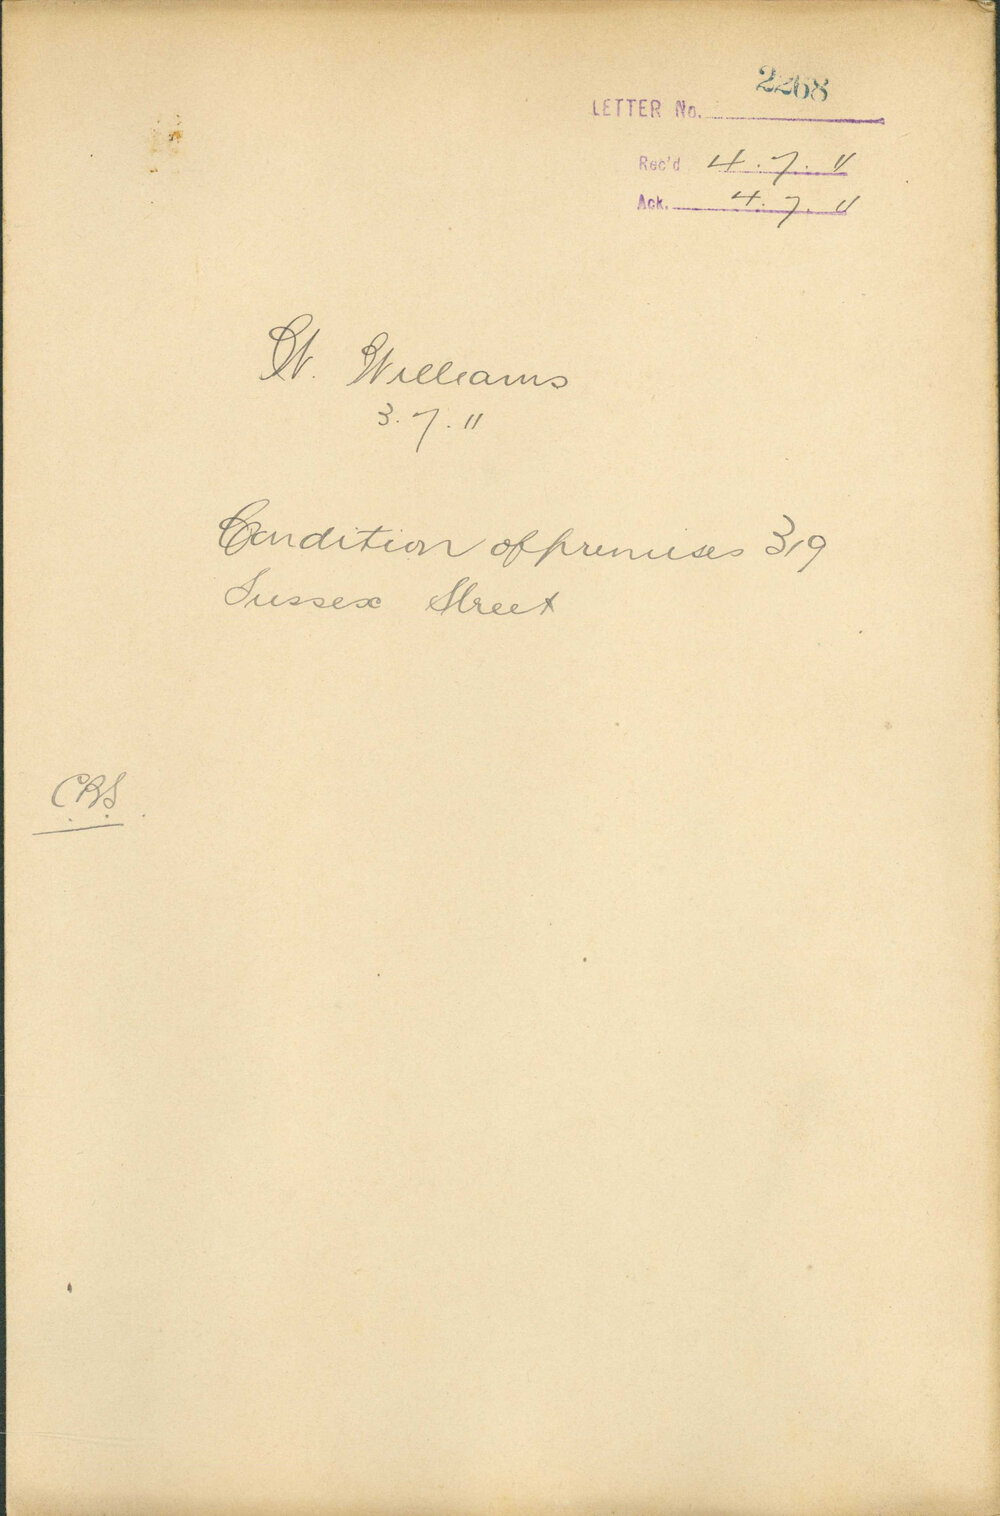 2268
LETTER No.
Rec'd 4.7.11
Ack. 4.7.11
W. Williams
3.7.11
Condition of premises 319
Sussex Street